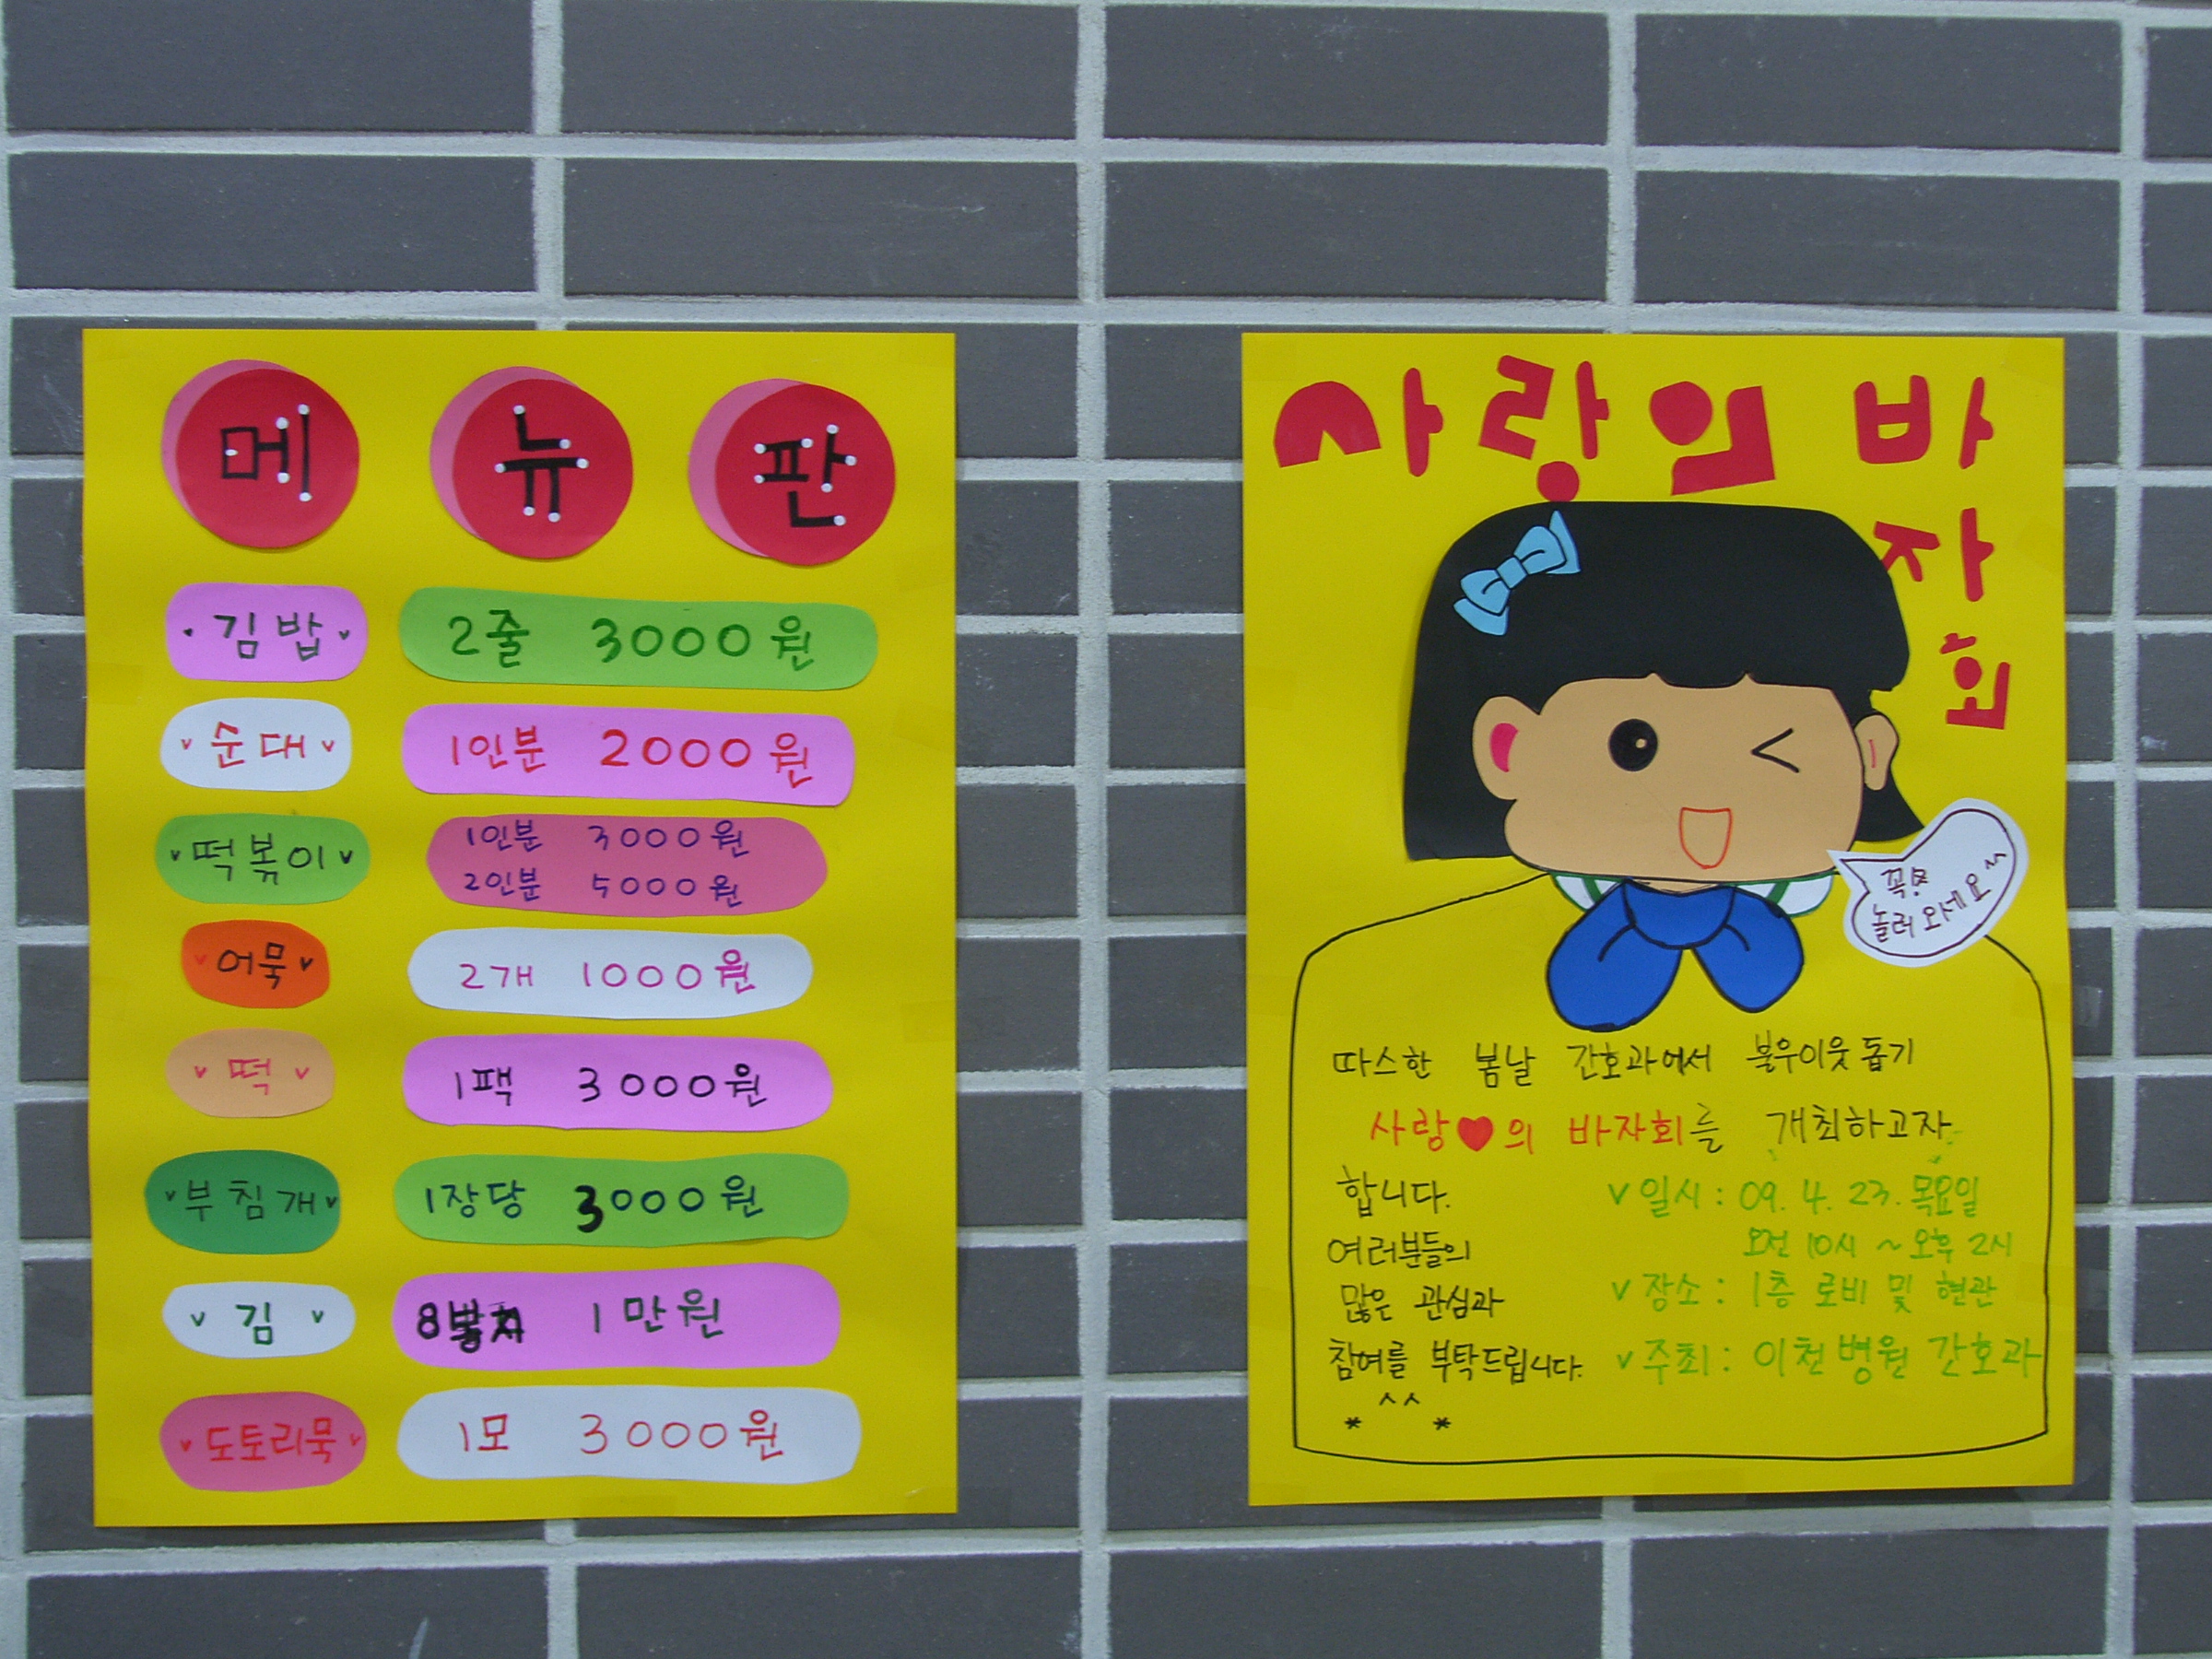 메뉴판
김밥 2줄 3000원
순대 1인분 2000원
떡볶이 1인분 3000원
2인분 5000원
어묵 2개 1000원
떡 1팩 3000원
부침개 1장당 3000원
김 8봉지 1만원
도토리묵 1모 3000원
사랑의 바
자
회
꼭!
놀러 오세요^^
따스한 봄날 간호과에서 불우이웃 돕기
사랑♥의 바자회를 개최하고자
합니다.
여러분들의
많은 관심과
참여를 부탁드립니다.
* ^^ *
v 일시 : 09. 4. 23. 목요일
오전 10시 ~ 오후 2시
v 장소 : 1층 로비 및 현관
v 주최 : 이천병원 간호과